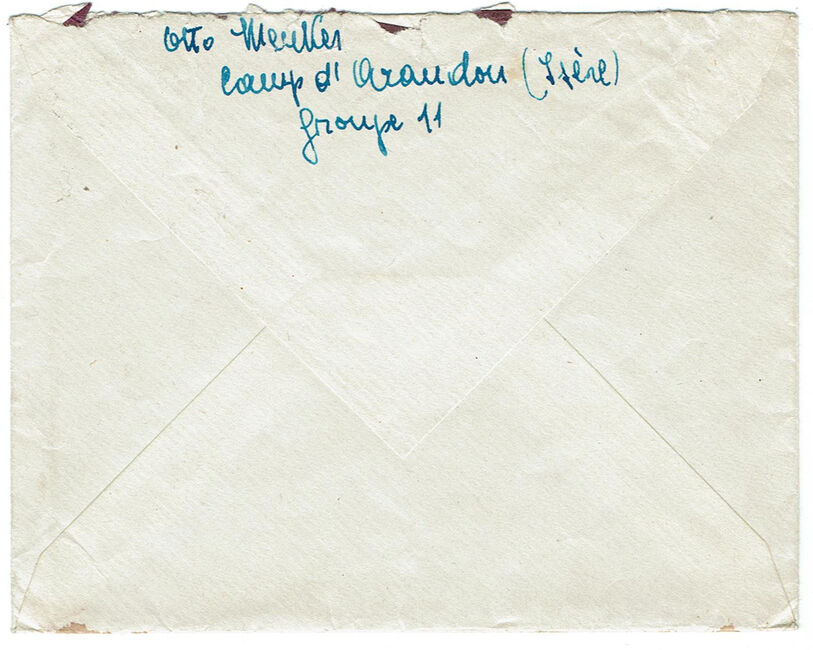 Otto Menkes
Camp d'Arandon (Isère)
Groupe 11